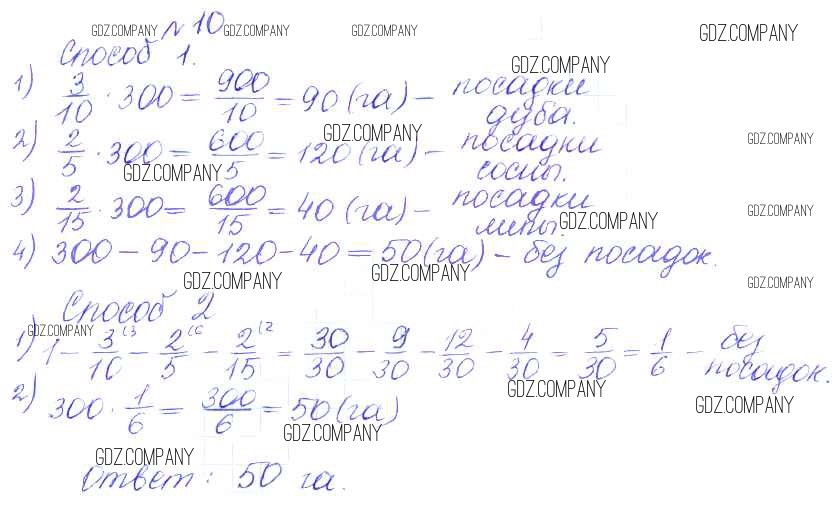 GDZ.COMPANY № 10 GDZ.COMPANY GDZ.COMPANY GDZ.COMPANY
Способ 1.
GDZ.COMPANY
1) 3/10 · 300 = 900/10 = 90 (га) – посадки
дуба.
GDZ.COMPANY GDZ.COMPANY
2) 2/5 · 300 = 600/5 = 120 (га) – посадки
сосны.
GDZ.COMPANY
3) 2/15 · 300 = 600/15 = 40 (га) – посадки
липы.
GDZ.COMPANY GDZ.COMPANY
4) 300 – 90 – 120 – 40 = 50 (га) – без посадок.
GDZ.COMPANY GDZ.COMPANY GDZ.COMPANY
Способ 2
GDZ.COMPANY
1) 1 – 3/10 (3 – 2/5 (6 – 2/15 (2 = 30/30 – 9/30 – 12/30 – 4/30 = 5/30 = 1/6 – без
посадок.
GDZ.COMPANY GDZ.COMPANY
2) 300 · 1/6 = 300/6 = 50 (га)
GDZ.COMPANY
GDZ.COMPANY
Ответ: 50 га.